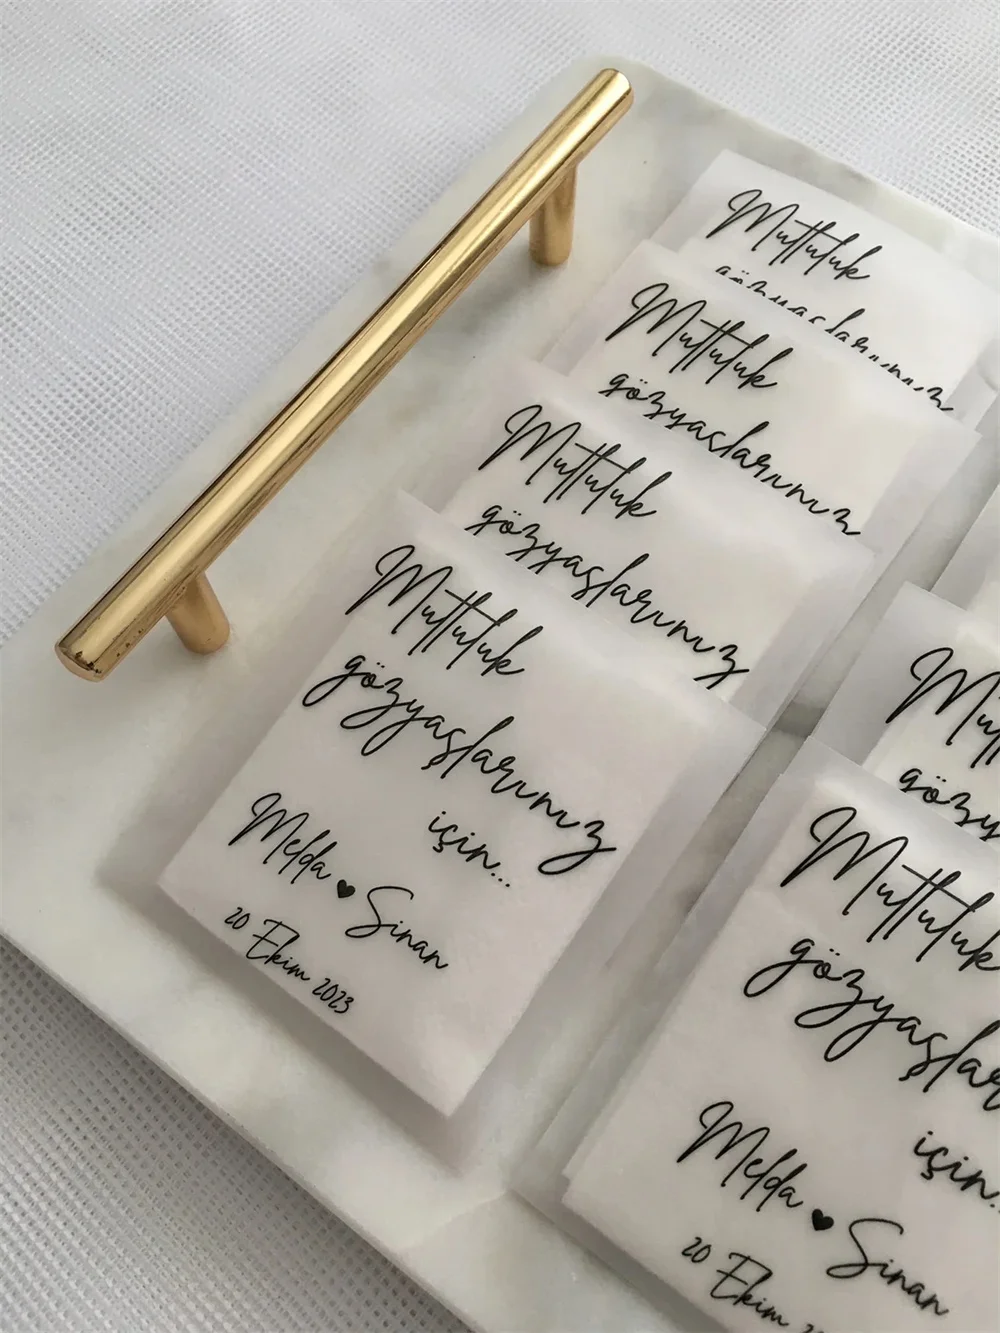 Mutluluk
gözyaşlarınız
Mutluluk
gözyaşlarınız
Mutluluk
gözyaşlarınız
Mutluluk
gözyaşlarınız
için...
Melda ♥ Sinan
20 Ekim 2023
Mutluluk
gözyaşlar
için...
Melda ♥ Sinan
20 Ekim